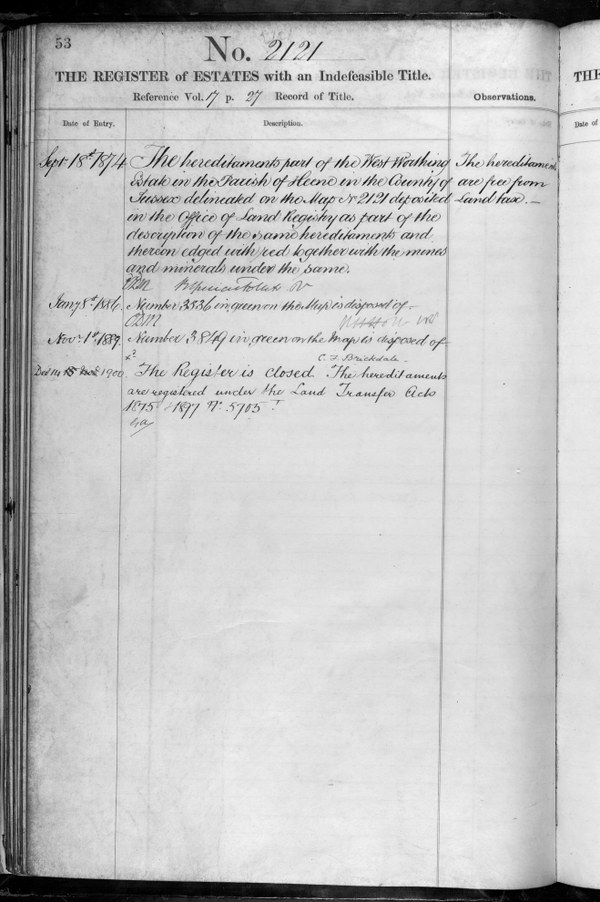 53
No. 2121
THE REGISTER of ESTATES with an Indefeasible Title.
Reference Vol. 17 p. 27 Record of Title.
Observations.
Date of Entry.
Description.
Sept 18th 1874
The hereditaments part of the West Worthing
Estate in the Parish of Heene in the County of
Sussex delineated on the Map No 2121 deposited
in the Office of Land Registry as part of the
description of the same hereditaments and
thereon edged with red together with the mines
and minerals under the same.
The hereditaments
are free from
Land tax. —
Jany 8th 1886.
Number 3536 in green on the Map is disposed of
Novr. 1st 1889.
Number 3849 in green on the Map is disposed of
C. F. Brickdale
Dec 14 1900.
The Register is closed. The hereditaments
are registered under the Land Transfer Acts
1875 & 1897 No. 5705
THE
Date of